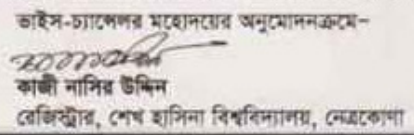 ভাইস-চ্যান্সেলর মহোদয়ের অনুমোদনক্রমে–
কাজী নাসির উদ্দিন
রেজিস্ট্রার, শেখ হাসিনা বিশ্ববিদ্যালয়, নেত্রকোণা